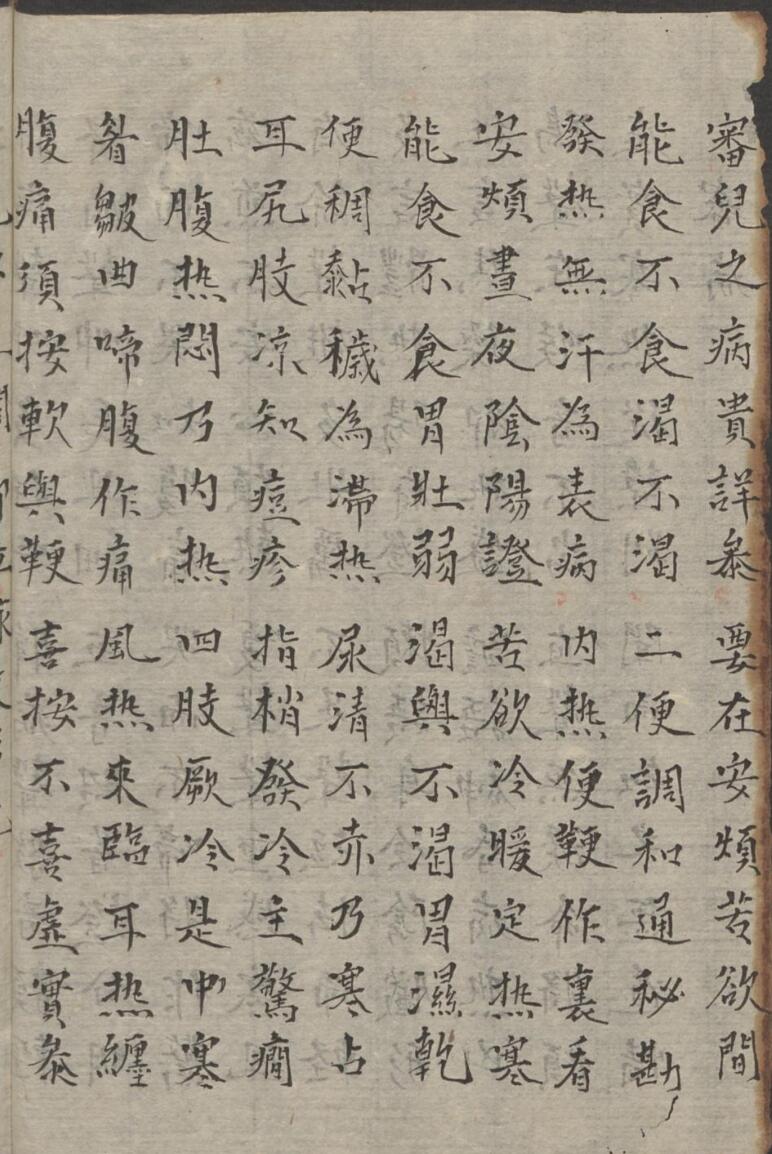 審兒之病貴詳叅要在安煩苦欲間
能食不食渴不渴二便調和通秘勘
發热無汗為表病内热便鞕作裏看
安煩晝夜陰陽證苦欲冷暖定热寒
能食不食胃壯弱渴與不渴胃濕乾
便稠黏穢為滯热尿清不赤乃寒占
耳尻肢凉知痘疹指梢發冷主驚癇
肚腹热悶乃内热四肢厥冷是中寒
眉皺曲啼腹作痛風热來臨耳热纏
腹痛須按軟與鞕喜按不喜虛實叅